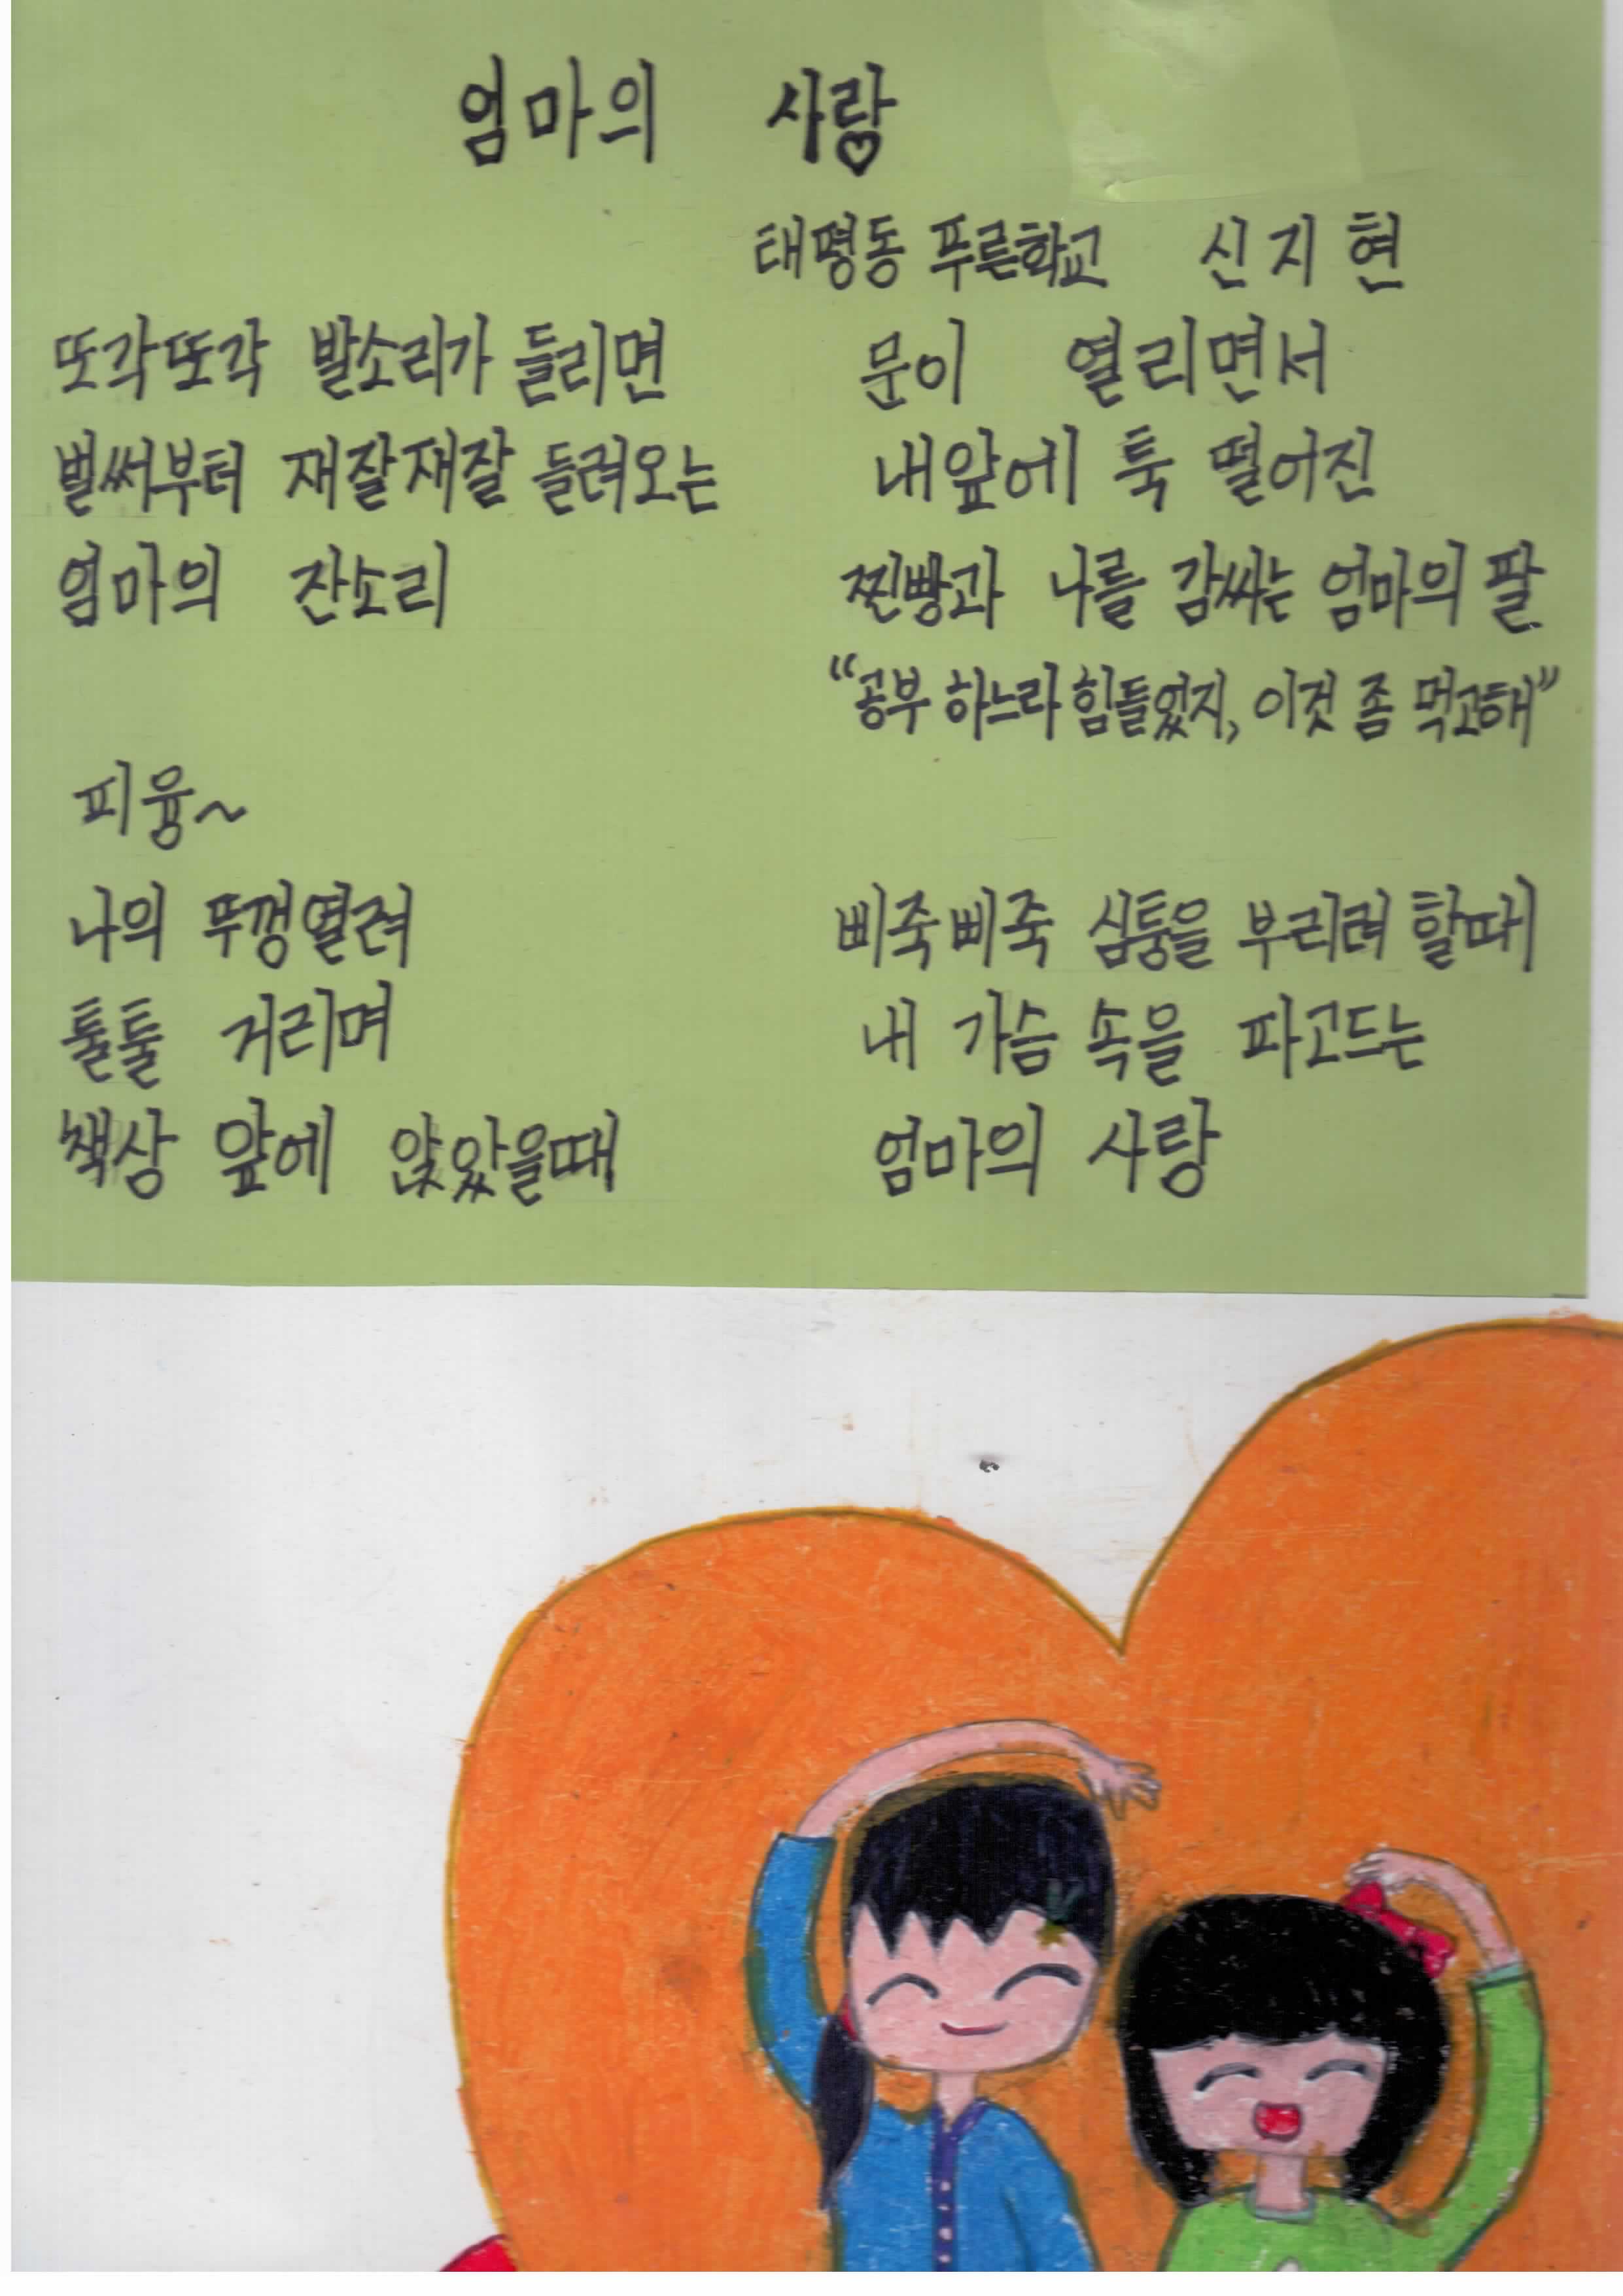 엄마의 사랑
태평동 푸른학교 신지현
또각또각 발소리가 들리면
벌써부터 재잘재잘 들려오는
엄마의 잔소리
피융~
나의 뚜껑열려
툴툴 거리며
책상 앞에 앉았을때
문이 열리면서
내앞에 툭 떨어진
찐빵과 나를 감싸는 엄마의 팔
“공부 하느라 힘들었지, 이것 좀 먹고해”
삐죽삐죽 심퉁을 부리려 할때
내 가슴 속을 파고드는
엄마의 사랑